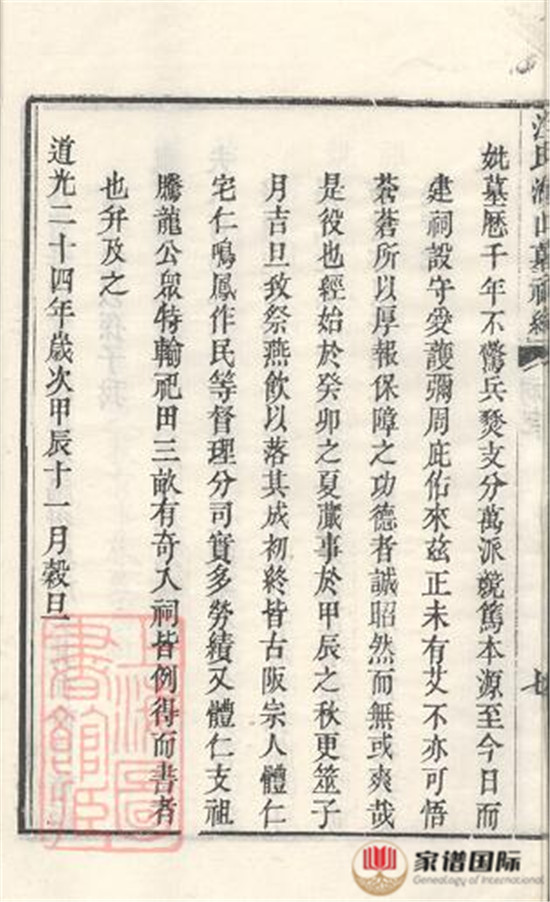 妣墓歷千年不驚兵燹支分萬派競篤本源至今日而
建祠設守愛護彌周庇佑來茲正未有艾不亦可悟
蒼蒼所以厚報保障之功德者誠昭然而無或爽哉
是役也經始於癸卯之夏蕆事於甲辰之秋更筮子
月吉旦致祭燕飲以落其成初終皆古阪宗人體仁
宅仁鳴鳳作民等督理分司實多勞績又體仁支祖
騰龍公眾特輸祀田三畝有奇入祠皆例得而書者
也并及之
道光二十四年歲次甲辰十一月穀旦
上海圖書館藏
家谱国际
Genealogy of International